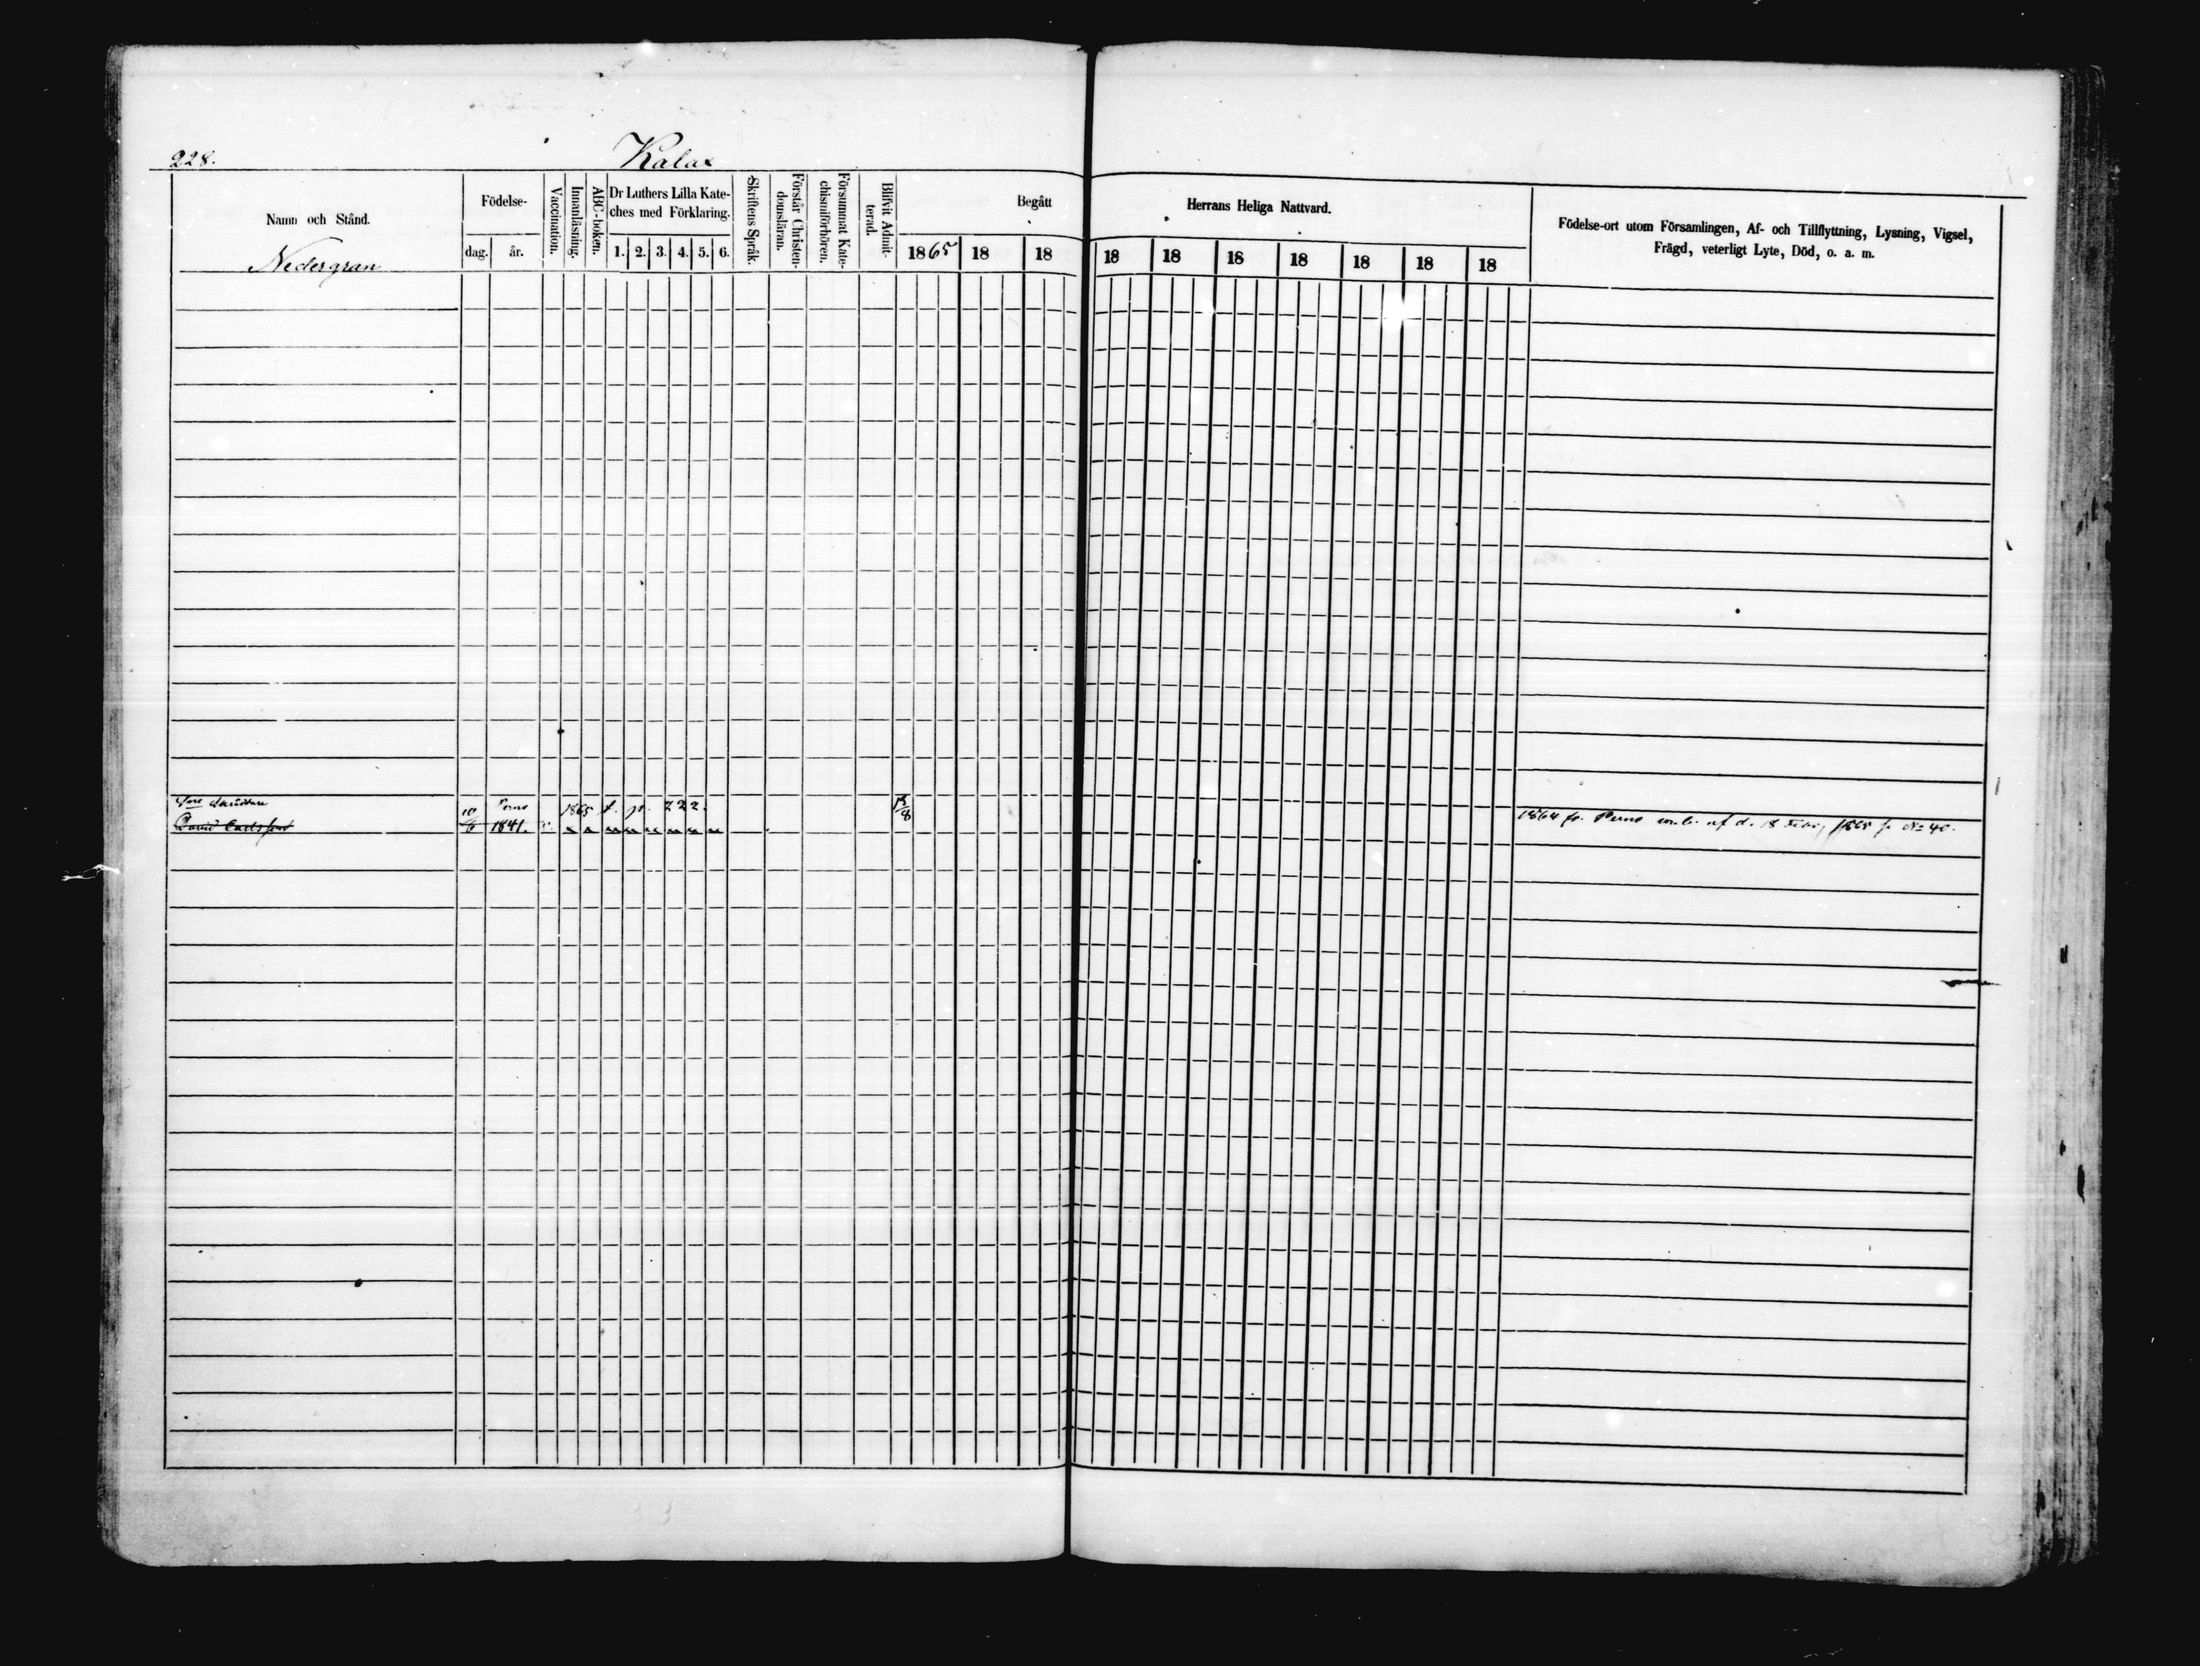 228.
Kalax
Namn och Stånd.
Födelse-
dag. år.
Vaccination.
Innanläsning.
ABC-boken.
Dr Luthers Lilla Kate-
ches med Förklaring.
1. 2. 3. 4. 5. 6.
Skriftens Språk.
Förstår Christen-
domsläran.
Försummat Kate-
chismiförhören.
Blifvit Admit-
terad.
Begått Herrans Heliga Nattvard.
1865 18 18 18 18 18 18 18 18 18
Födelse-ort utom Församlingen, Af- och Tillflyttning, Lysning, Vigsel,
Frägd, veterligt Lyte, Död, o. a. m.
Nedergran
Perno 1865 2 2 2.
David Carlsson 10/6 1841. v.
13/8
1864 fr. Perno af d. 18 Febr. 1865 N:o 40.